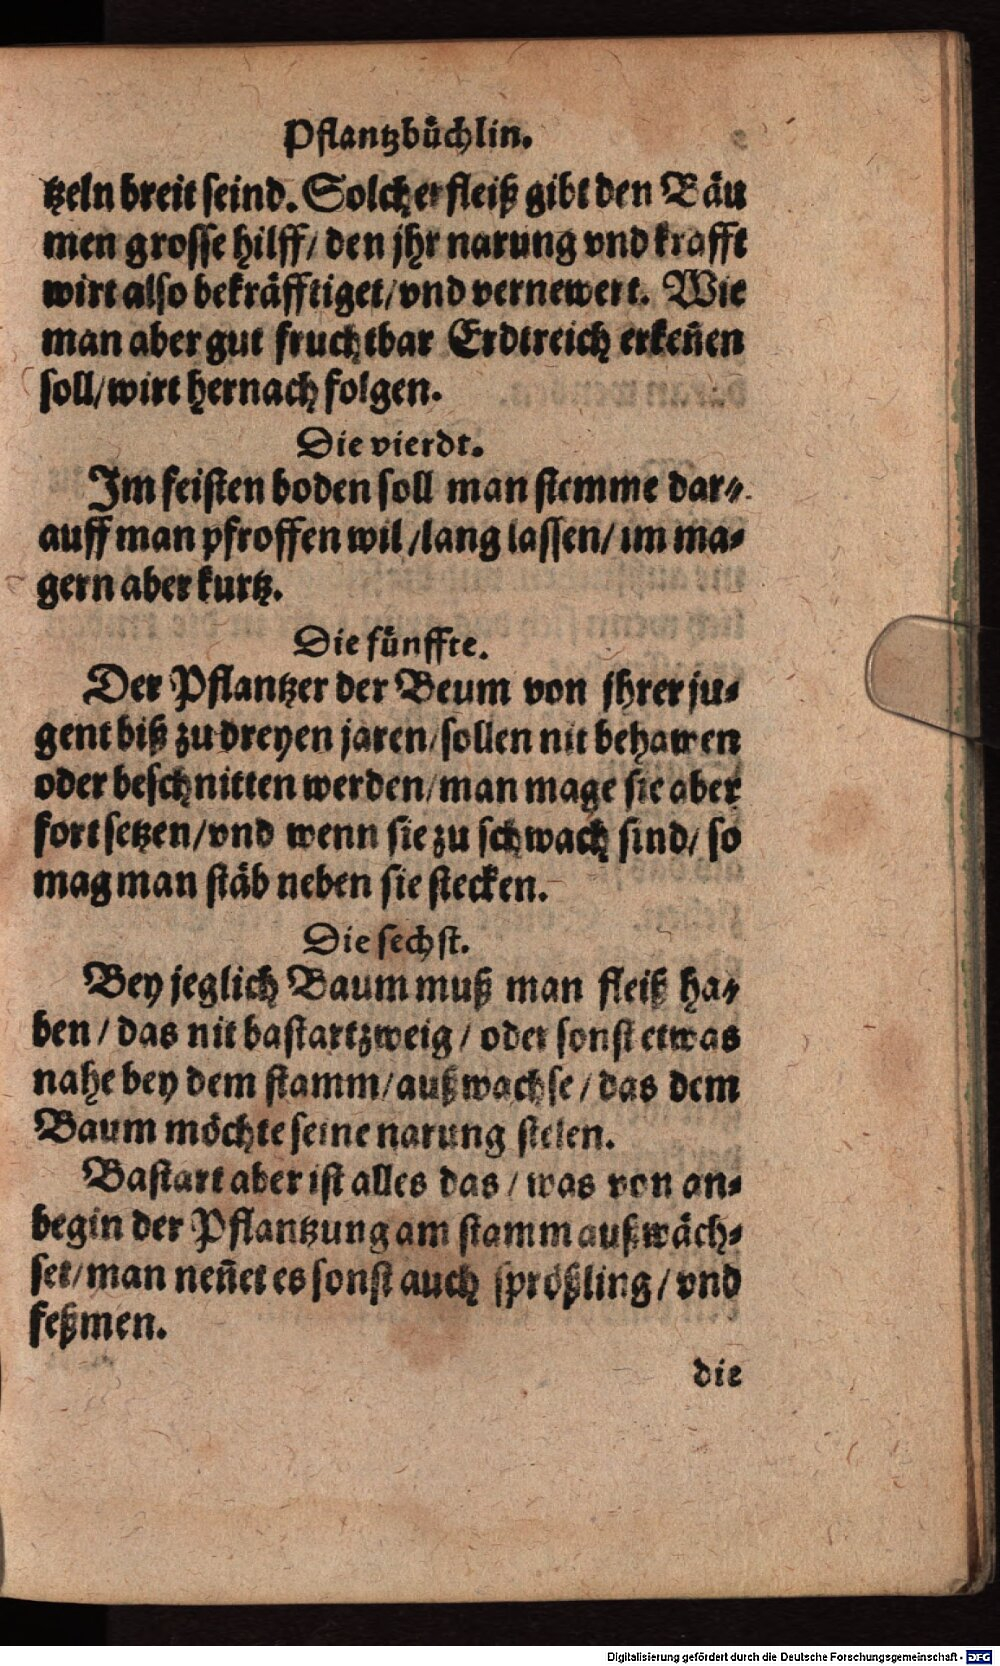 Pflantzbüchlin.
tzeln breit seind. Solcher fleiß gibt den Bäu
men grosse hilff/ den jhr narung vnd krafft
wirt also bekräfftiget/ vnd vernewert. Wie
man aber gut fruchtbar Erdtreich erkeñen
soll/ wirt hernach folgen.
Die vierdt.
Im feisten boden soll man stemme dar-
auff man pfroffen wil/ lang lassen/ im ma-
gern aber kurtz.
Die fünffte.
Der Pflantzer der Beum von jhrer ju-
gent biß zu dreyen jaren/ sollen nit behawen
oder beschnitten werden/ man mage sie aber
fort setzen/ vnd wenn sie zu schwach sind/ so
mag man stäb neben sie stecken.
Die sechst.
Bey jeglich Baum muß man fleiß ha-
ben/ das nit bastartzweig/ oder sonst etwas
nahe bey dem stamm/ außwachse/ das dem
Baum möchte seine narung stelen.
Bastart aber ist alles das/ was von an-
begin der Pflantzung am stamm außwäch-
set/ man neñet es sonst auch sprößling/ vnd
feßmen.
die
Digitalisierung gefördert durch die Deutsche Forschungsgemeinschaft - DFG